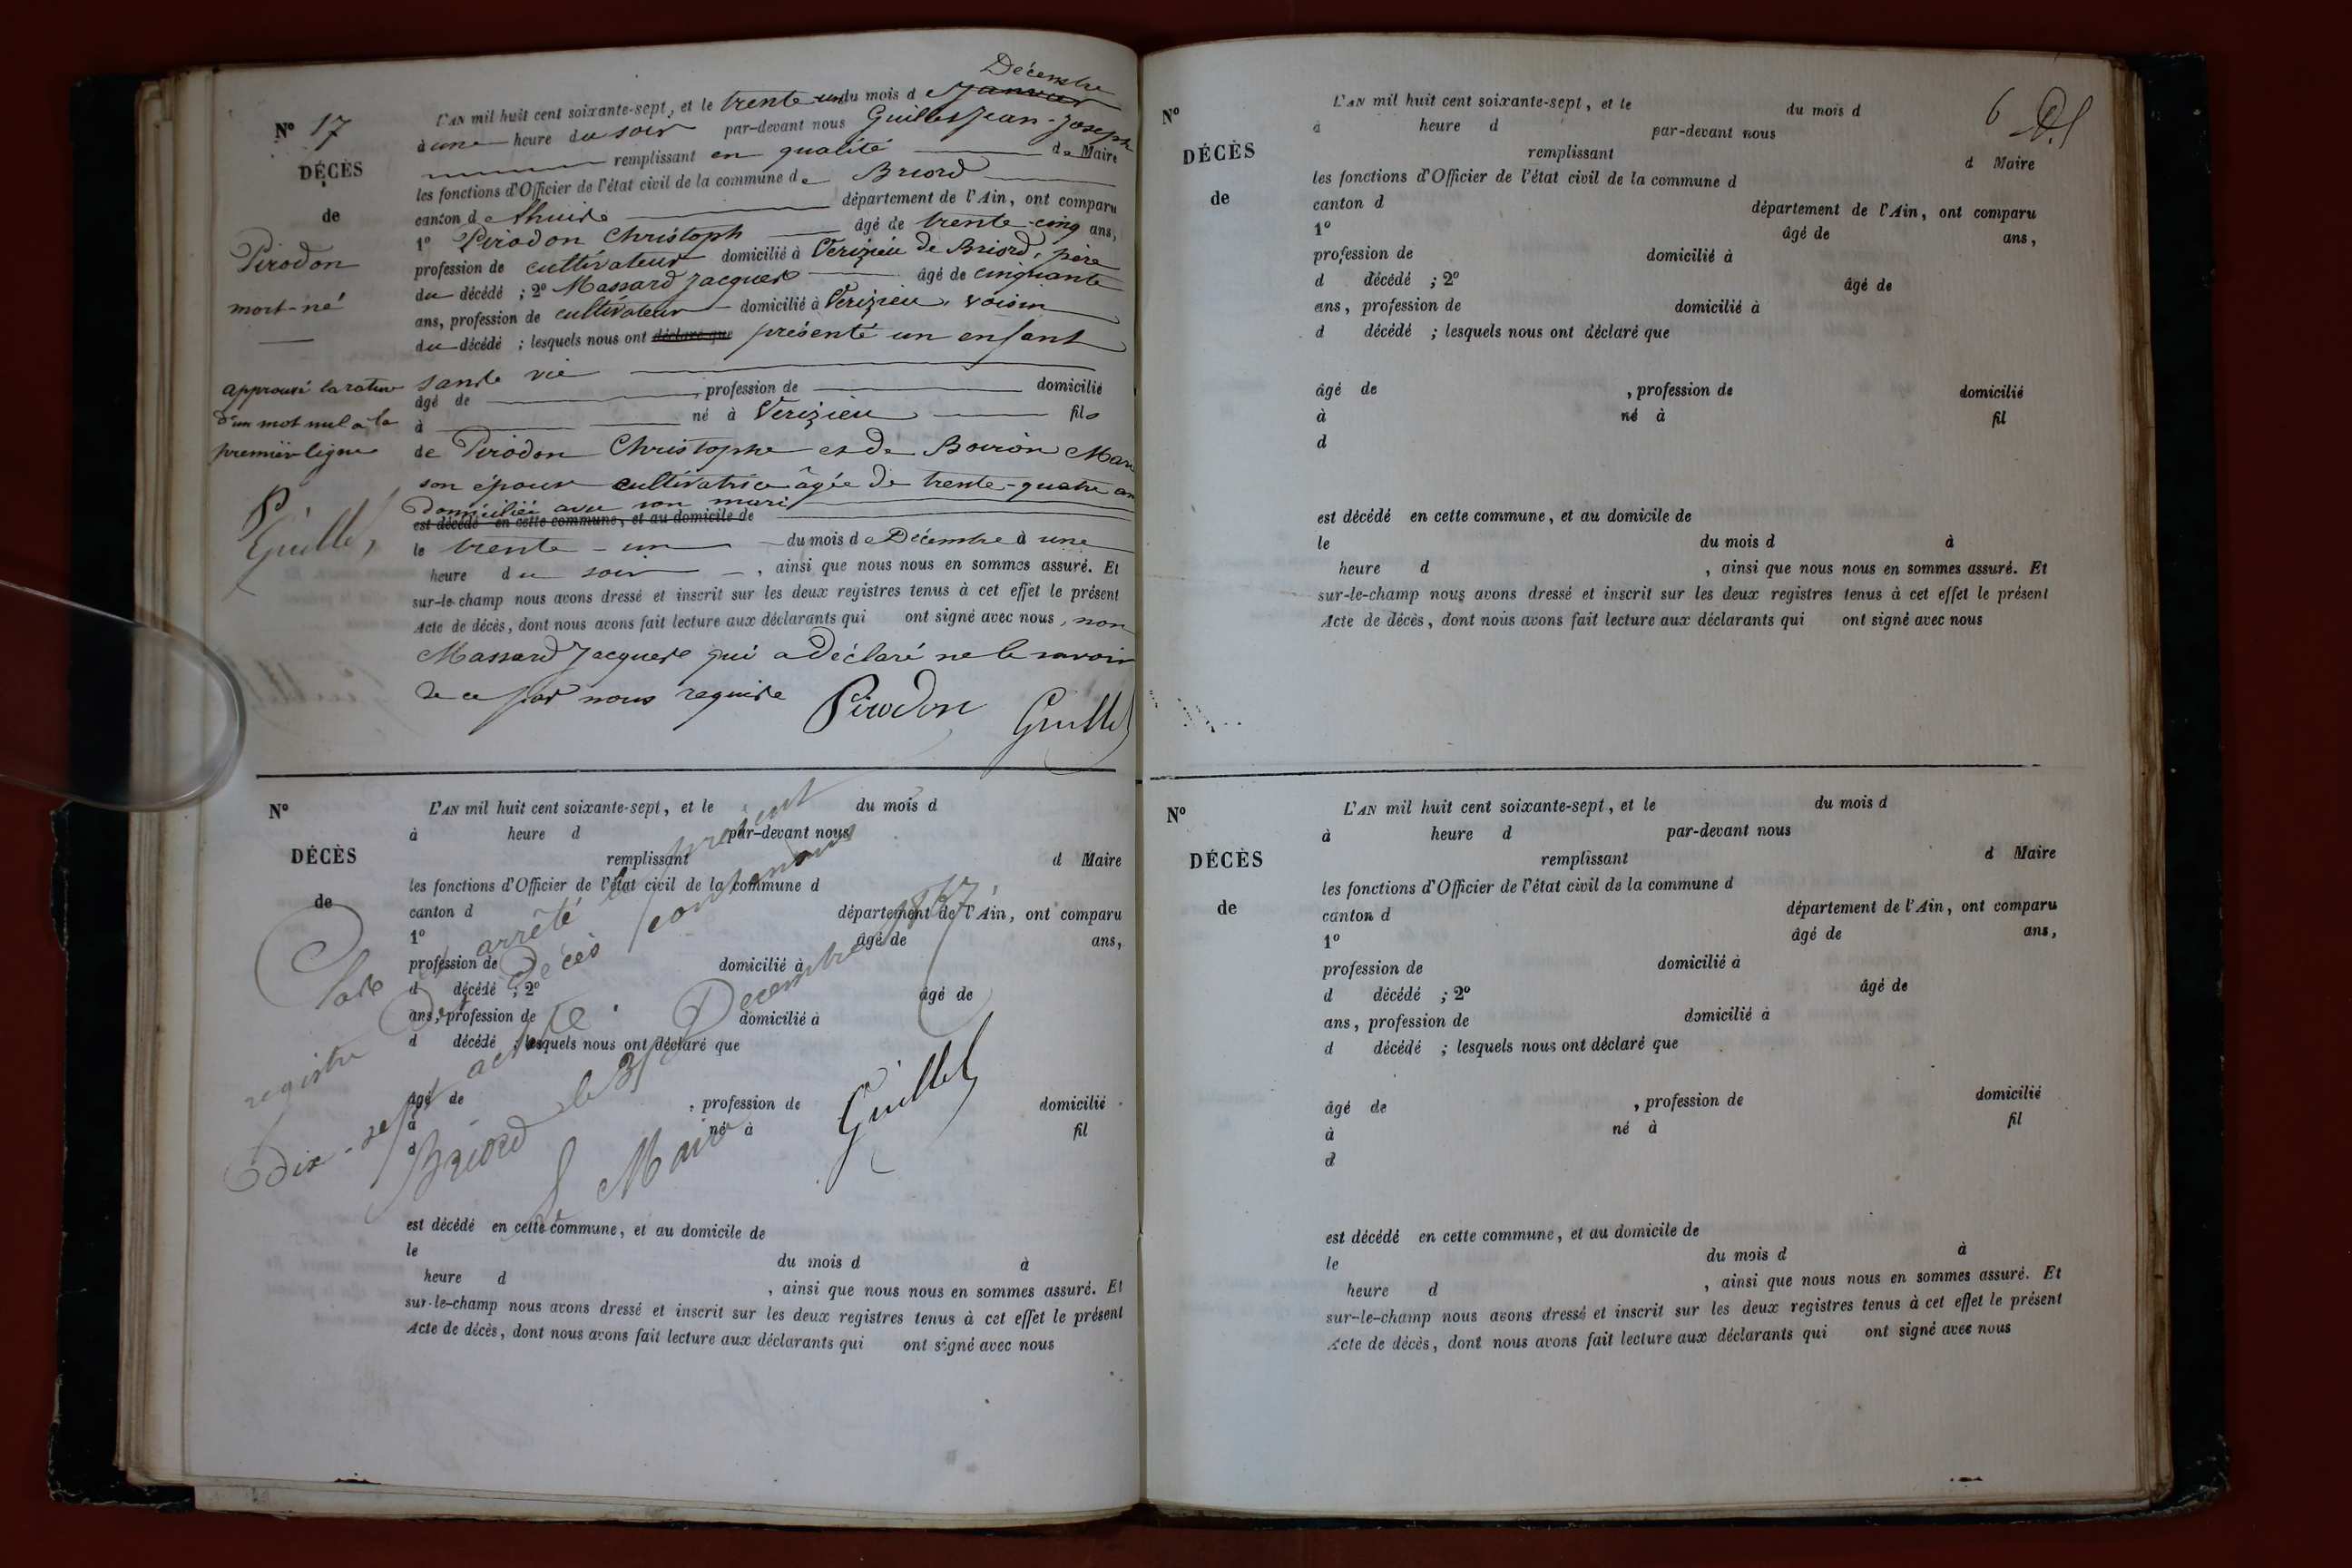 Décembre
N° 17
L'AN mil huit cent soixante-sept, et le trente un du mois d e Janvier
à une heure du soir par-devant nous Guillet Jean-Joseph
remplissant en qualité de Maire
les fonctions d'Officier de l'état civil de la commune de Briord
canton de Lhuis département de l'Ain, ont comparu
1° Pirodon Christoph âgé de trente-cinq ans,
profession de cultivateur domicilié à Verizieu de Briord, père
du décédé ; 2° Massard Jacques âgé de cinquante
ans, profession de cultivateur domicilié à Verizieu, voisin
du décédé ; lesquels nous ont déclaré que présenté un enfant
sans vie
âgé de , profession de domicilié
à né à Verizieu fils
de Pirodon Christophe et de Boiron Marie
son épouse cultivatrice âgée de trente-quatre ans
domiciliée avec son mari
est décédé en cette commune, et au domicile de
le trente-un du mois de Décembre à une
heure du soir , ainsi que nous nous en sommes assuré. Et
sur-le-champ nous avons dressé et inscrit sur les deux registres tenus à cet effet le présent
Acte de décès, dont nous avons fait lecture aux déclarants qui ont signé avec nous, non
Massard Jacques qui a déclaré ne le savoir
de ce par nous requis Pirodon Guillet
DÉCÈS
de
Pirodon
mort-né
approuvé la rature
d'un mot nul à la
première ligne
Guillet
N°
DÉCÈS
de
L'AN mil huit cent soixante-sept, et le du mois d
à heure d par-devant nous
remplissant d Maire
les fonctions d'Officier de l'état civil de la commune d
canton d département de l'Ain, ont comparu
1° âgé de ans,
profession de domicilié à
d décédé ; 2° âgé de
ans, profession de domicilié à
d décédé ; lesquels nous ont déclaré que
âgé de , profession de domicilié
à né à fil
d
est décédé en cette commune, et au domicile de
le du mois d à
heure d , ainsi que nous nous en sommes assuré. Et
sur-le-champ nous avons dressé et inscrit sur les deux registres tenus à cet effet le présent
Acte de décès, dont nous avons fait lecture aux déclarants qui ont signé avec nous
arrêté le présent
registre Des Décès contenant
Dix-sept actes.
Briord le 31 Décembre 1867
Le Maire
Guillet
6
N°
DÉCÈS
de
L'AN mil huit cent soixante-sept, et le du mois d
à heure d par-devant nous
remplissant d Maire
les fonctions d'Officier de l'état civil de la commune d
canton d département de l'Ain, ont comparu
1° âgé de ans,
profession de domicilié à
d décédé ; 2° âgé de
ans, profession de domicilié à
d décédé ; lesquels nous ont déclaré que
âgé de , profession de domicilié
à né à fil
d
est décédé en cette commune, et au domicile de
le du mois d à
heure d , ainsi que nous nous en sommes assuré. Et
sur-le-champ nous avons dressé et inscrit sur les deux registres tenus à cet effet le présent
Acte de décès, dont nous avons fait lecture aux déclarants qui ont signé avec nous
N°
DÉCÈS
de
L'AN mil huit cent soixante-sept, et le du mois d
à heure d par-devant nous
remplissant d Maire
les fonctions d'Officier de l'état civil de la commune d
canton d département de l'Ain, ont comparu
1° âgé de ans,
profession de domicilié à
d décédé ; 2° âgé de
ans, profession de domicilié à
d décédé ; lesquels nous ont déclaré que
âgé de , profession de domicilié
à né à fil
d
est décédé en cette commune, et au domicile de
le du mois d à
heure d , ainsi que nous nous en sommes assuré. Et
sur-le-champ nous avons dressé et inscrit sur les deux registres tenus à cet effet le présent
Acte de décès, dont nous avons fait lecture aux déclarants qui ont signé avec nous